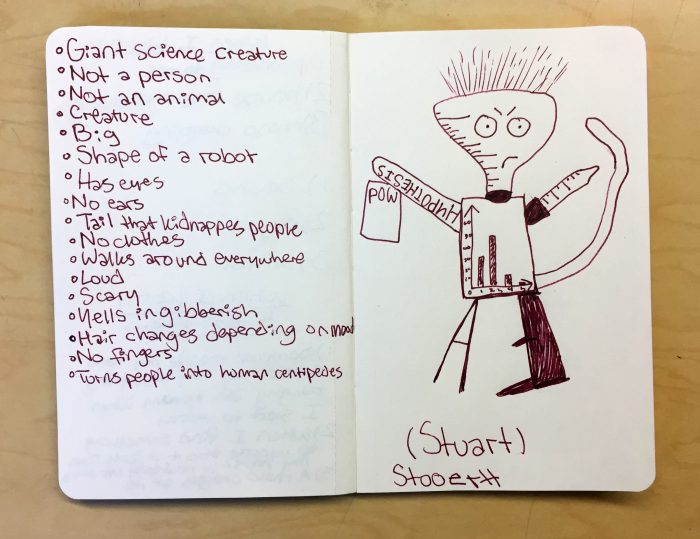 Giant Science Creature
Not a person
Not an animal
Creature
Big
Shape of a robot
Has eyes
No ears
Tail that kidnappes people
No clothes
Walks around everywhere
Loud
Scary
Yells in gibberish
Hair changes depending on mood
No fingers
Turns people into human centipedes
HYPOTHESIS
POW
(Stuart)
Stooert